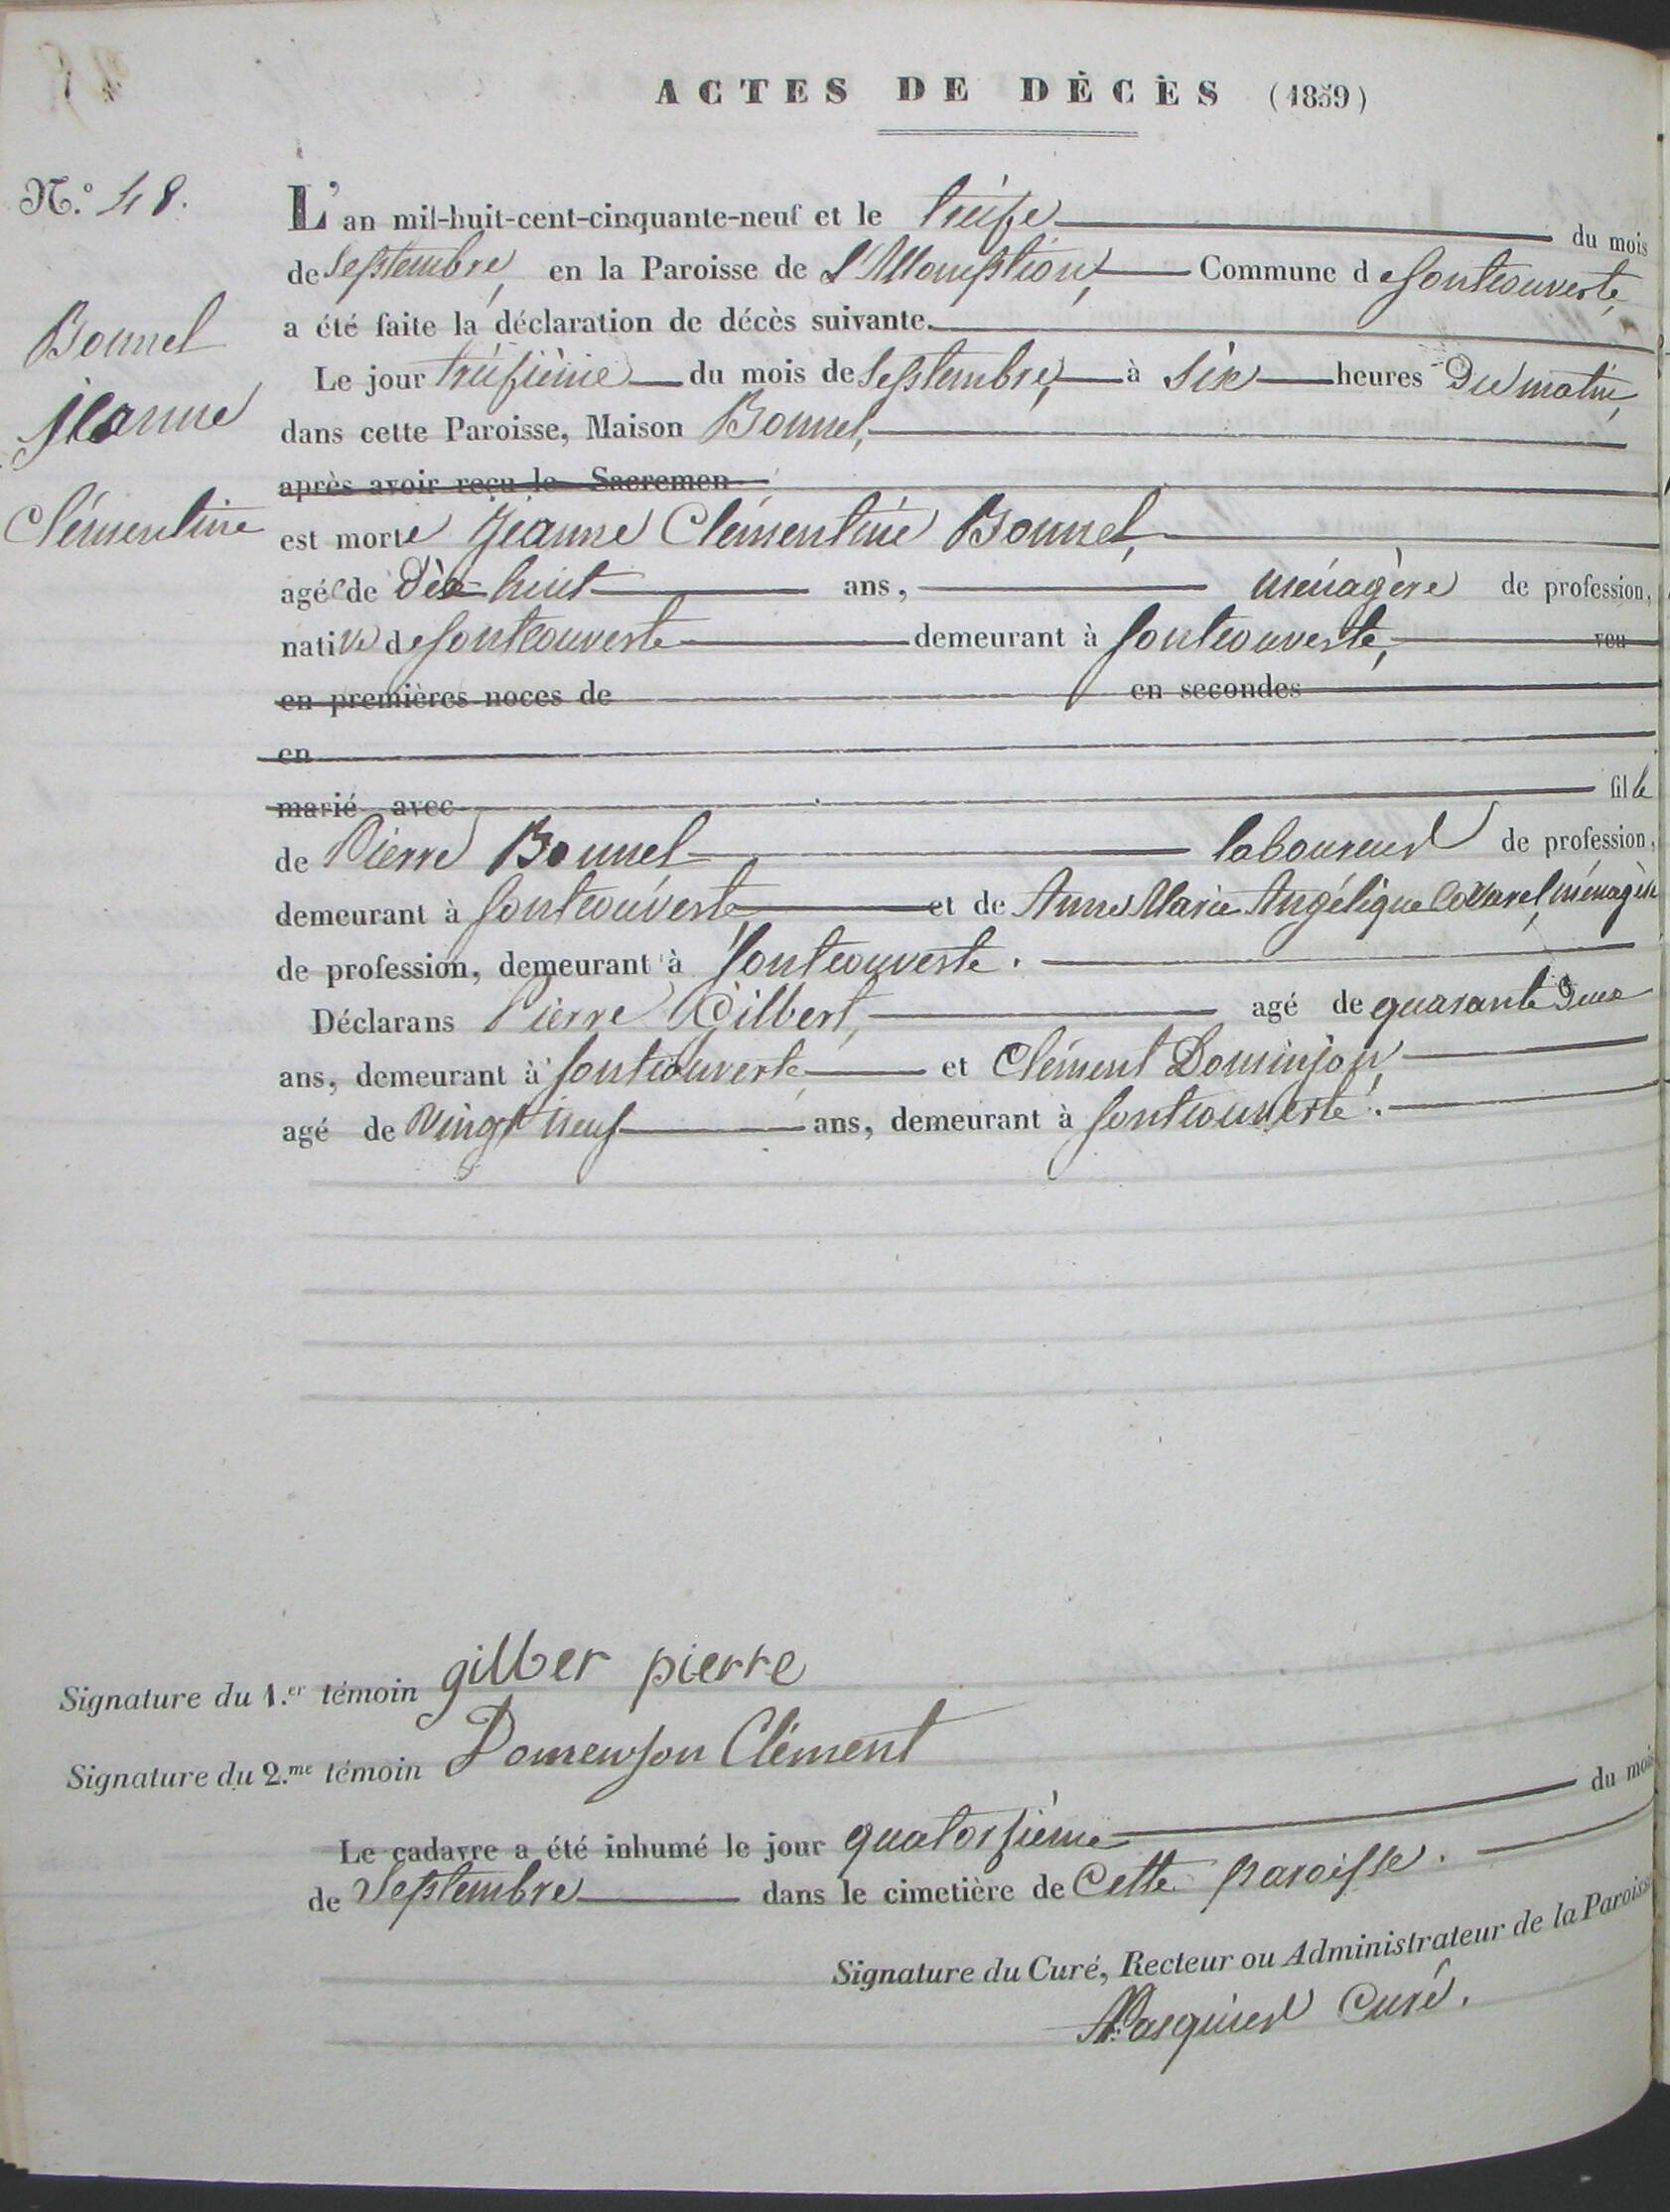 ACTES DE DÉCÈS (1859)
N.º 48.
L'an mil-huit-cent-cinquante-neuf et le treize du mois
de Septembre, en la Paroisse de L'Assomption, Commune de fontcouverte,
a été faite la déclaration de décès suivante.
Bonnel
Jeanne
Clémentine
Le jour treizième du mois de Septembre, à Six heures Du matin,
dans cette Paroisse, Maison Bonnel,
après avoir reçu le Sacremen
est morte Jeanne Clémentine Bonnel,
agée de Dix-huit ans, ménagère de profession,
native de fontcouverte demeurant à fontcouverte, veu
en premières noces de en secondes
en
marié avec fille
de Pierre Bonnel laboureur de profession,
demeurant à fontcouverte, et de Anne Marie Angélique Collarel, ménagère
de profession, demeurant à fontcouverte.
Déclarans Pierre Gilbert, agé de quarante Deux
ans, demeurant à fontcouverte, et Clément Dominjon,
agé de vingt neuf ans, demeurant à fontcouverte.
Signature du 1.er témoin gilber pierre
Signature du 2.me témoin Domenjon Clément
Le cadavre a été inhumé le jour quatorzième du mois
de Septembre dans le cimetière de Cette paroisse.
Signature du Curé, Recteur ou Administrateur de la Paroisse
Pasquier Curé.